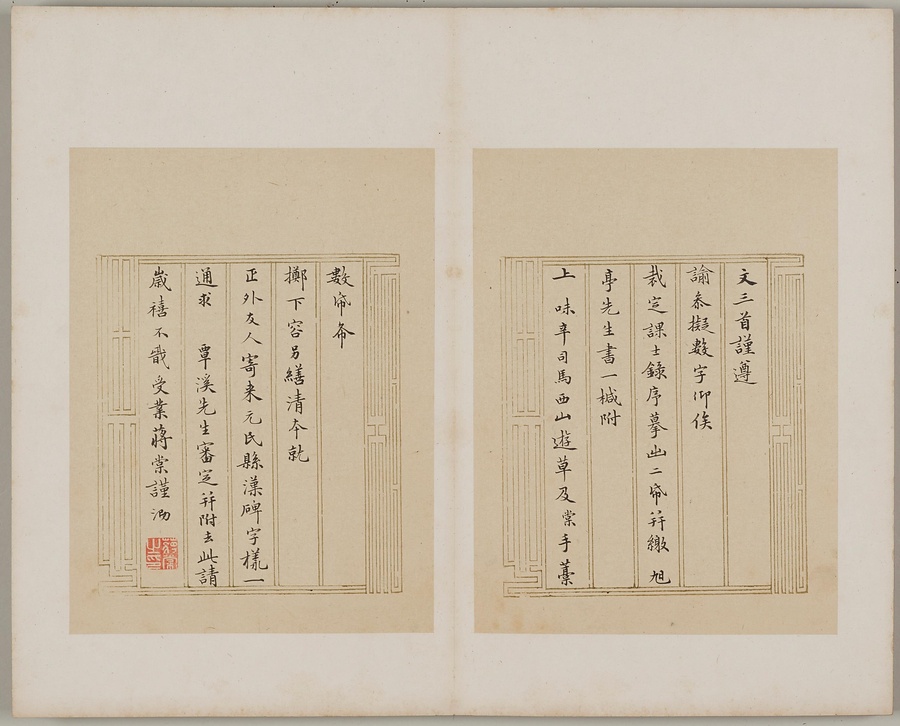 文三首謹遵
諭恭擬數字仰俟
裁定課士錄序摹出二帋并繳 旭
亭先生書一械附
上 味辛司馬西山遊草及棠手藁
數帋希
擲下容另繕清本就
正外友人寄来元氏縣漢碑字樣一
通求 覃溪先生審定并附去此請
歲禧不戩受業蔣棠謹泐